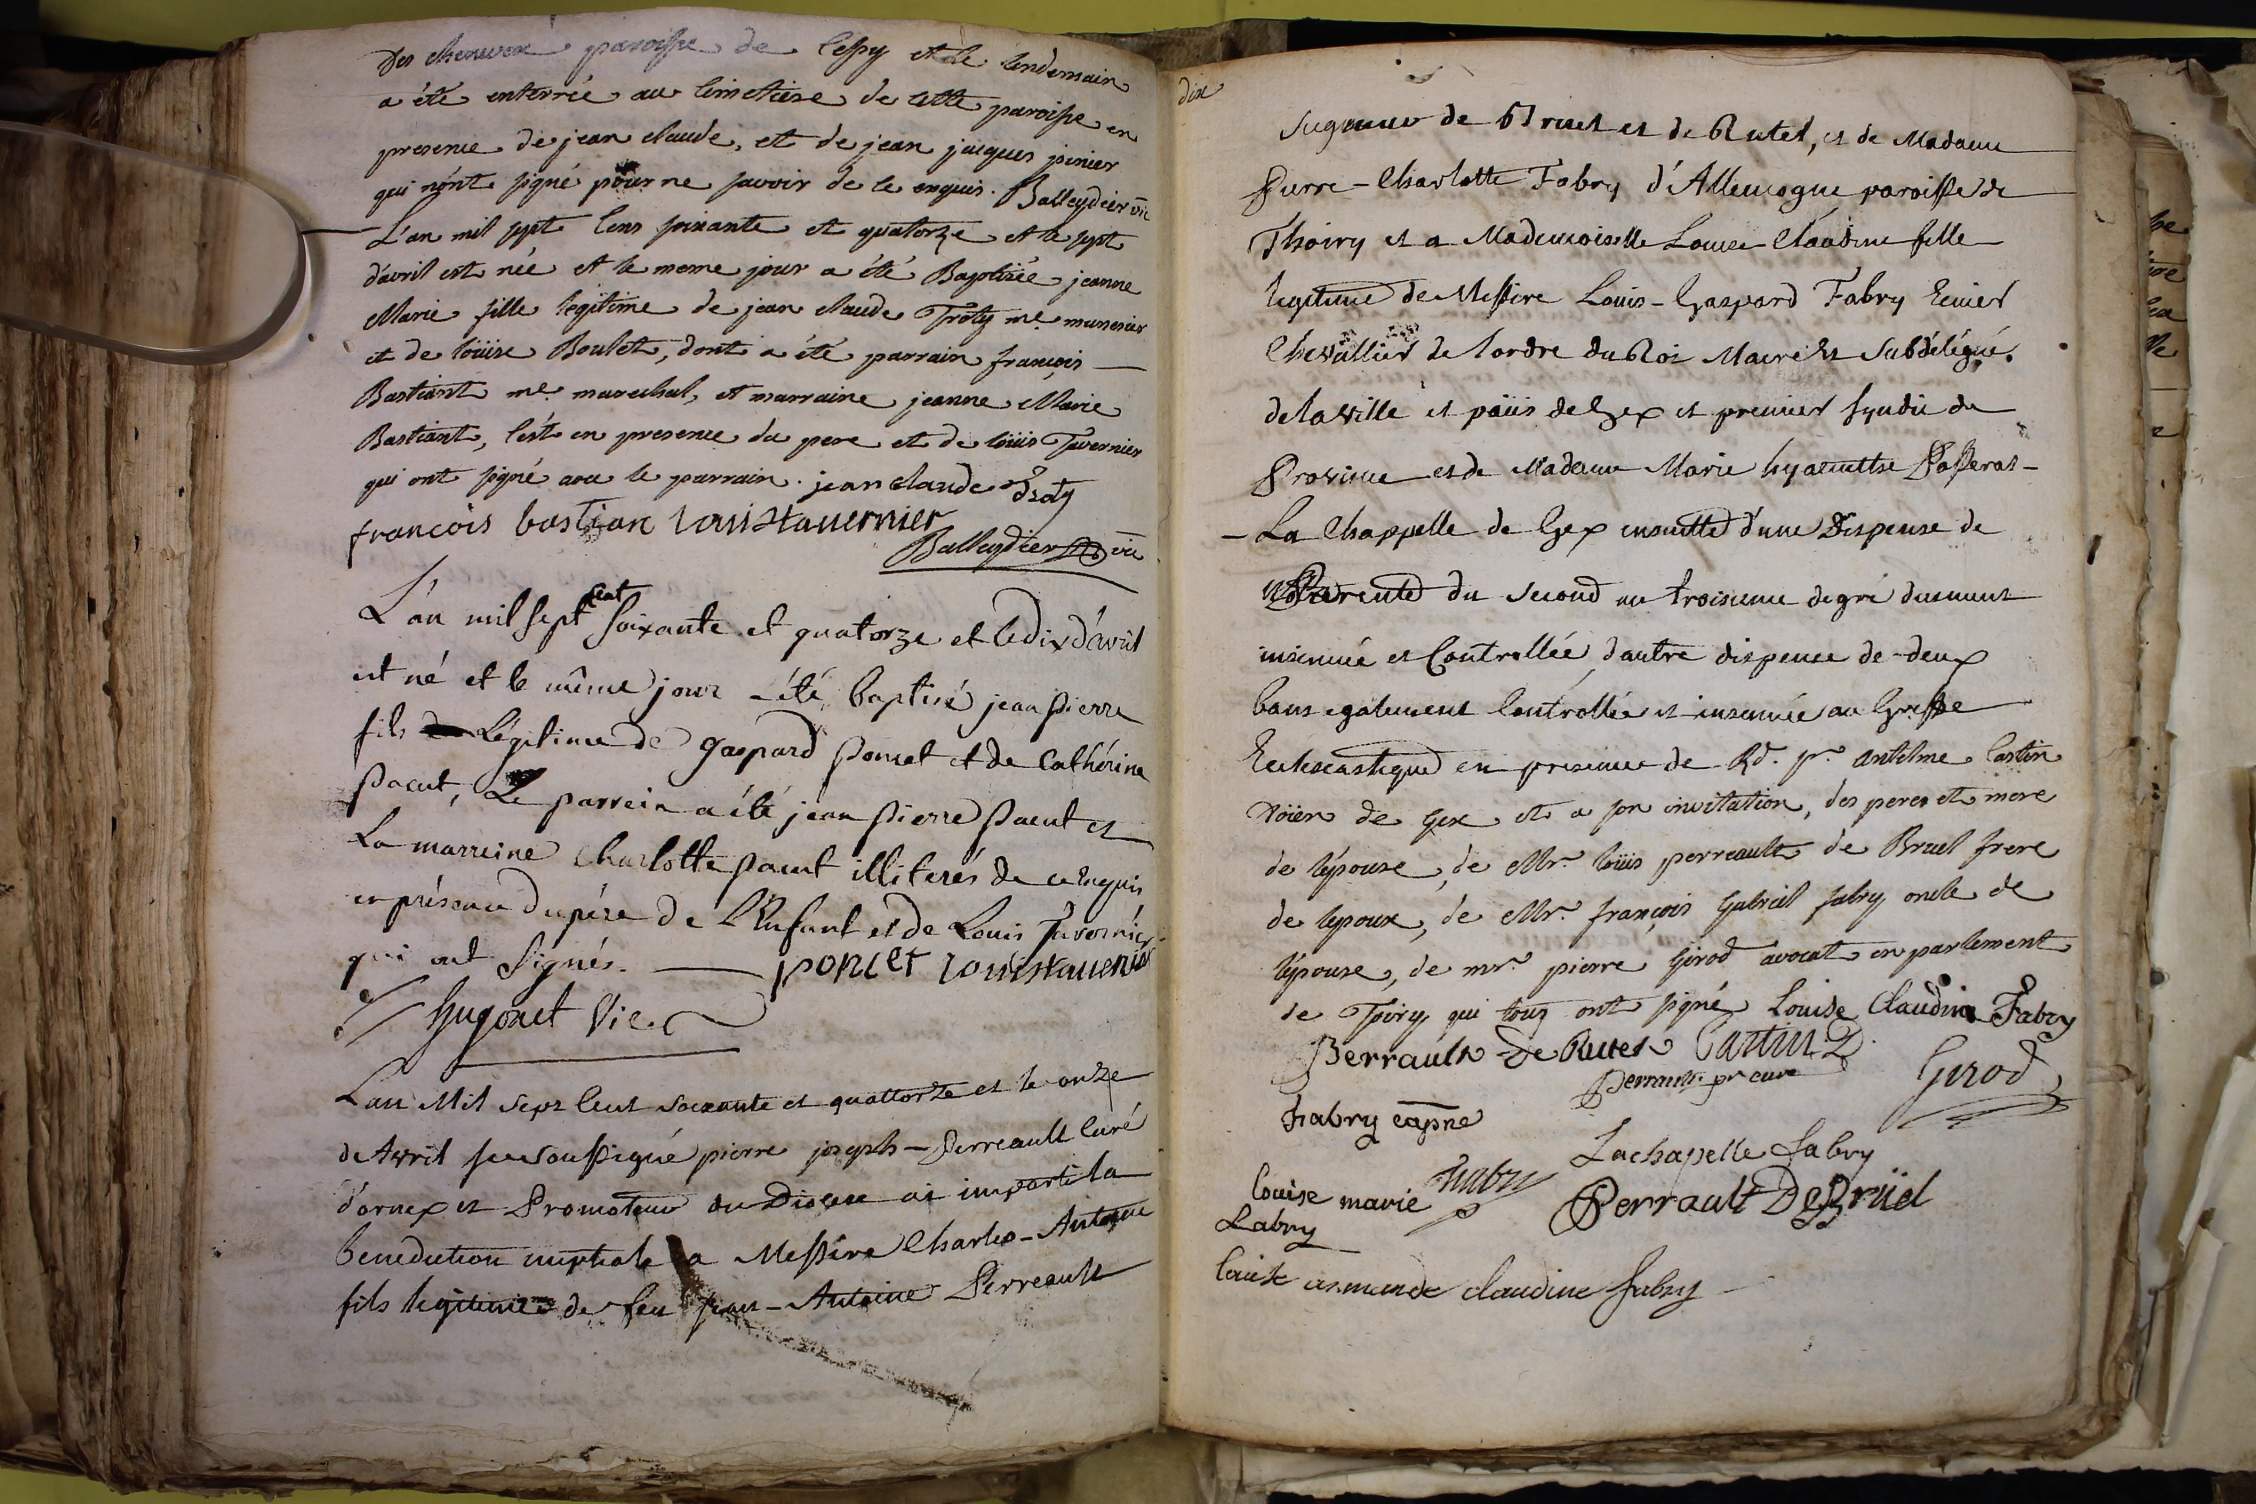 Des chenvex paroisse de Cessy et le lendemain
a été enterrée au cimetiere de cette paroisse en
presence de jean claude, et de jean jacques joinier
qui n'ont signé pour ne savoir de ce enquis. Balleydier vic
L'an mil sept cens soixante et quatorze et le sept
d'avril est née et le meme jour a été Baptisée jeanne
Marie fille legitime de jean claude Troty me. munenier
et de loüise Boulet, dont a été parrain françois
Bastiant me. marechal, et marraine jeanne Marie
Bastiant, c'est en presence du pere et de loüis Tavernier
qui ont signé avec le parrain. jean claude Traty
françois bastian louis tauernier
Balleydier vic
L'an mil sept cent soixante et quatorze et le dix d'avril
est né et le même jour a été baptisé jean pierre
fils Légitime de gaspard poncet et de Cathérine
pacut, Le parrein a été jean pierre pacut et
La marreine Charlotte pacut illiterés de ce enquis
en présence du pére de l'Enfant et de Louis Tavernier
qui ont signés. poncet louis tauernier
hugonet Vic.
L'an Mil sept Cent soixante et quattorze et le onze
de Avril je soussigné pierre joseph - Perreault Curé
d'ornex et Promoteur du Diocese ai imparti la
benediction nuptiale a Messire Charles - Antoine
fils legitime de feu jean - Antoine Perreault
dix
seigneur de Bruel et de Rutet, et de Madame
Pierre - Charlotte Fabry d'Allemogne paroisse de
Thoiry et a Mademoiselle Louise Claudine fille
legitime de Messire Louis - Gaspard Fabry Ecuier
Chevallier de l'ordre du Roi Maire et Subdélégué.
de la ville et païis de Gex et premier syndic de
Province et de Madame Marie hyacinthe Passerat -
- La Chappelle de Gex ensuitte d'une Dispense de
Parenté du second au troisieme degré duement
insinuée et Controllée, d'autre dispense de - deux
bans egalement Controllée et insinuée au Greffe
Ecclesiastique en presence de Rd. pr. antelme Castin
Doïen de Gex et a son invitation, des peres et mere
de l'épouse, de Mr. loüis perreault de Bruel frere
de l'epoux, de Mr. françois Gabriel fabry oncle de
l'épouse, de mr. pierre Girod avocat en parlement
de Toiry qui tous ont signé Louise Claudine Fabry
Perrault de Rutet Castin D.
Perrault pr cure Girod
Fabry capne
Lachapelle fabry
louise marie fabry Perrault De Brüel
Labry
louise armande claudine fabry